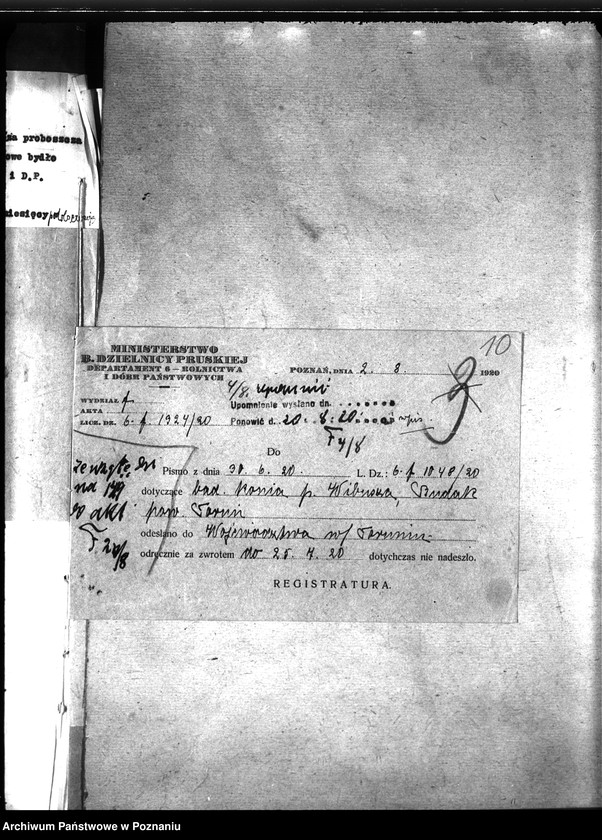 za proboszcza
owe bydło
i D.P.
miesięcy
10
MINISTERSTWO
B. DZIELNICY PRUSKIEJ
DEPARTAMENT 6 — ROLNICTWA
I DÓBR PAŃSTWOWYCH
POZNAŃ, DNIA 2. 8. 1920
4/8. upomnieć
WYDZIAŁ f.
Upomnienie wysłano dn.
AKTA
LICZ. DZ. 6. f. 1924/20
Ponowić d. 20. 8. 20.
4/8
Do
Pismo z dnia 30. 6. 20. L. Dz.: 6. f 1048/20
dotyczące bad. konia p. Wibusza, Rudak
pow. Toruń
odesłano do Województwa w/ Toruniu
odręcznie za zwrotem do 25. 7. 20 dotychczas nie nadeszło.
REGISTRATURA.
do akt
Archiwum Państwowe w Poznaniu